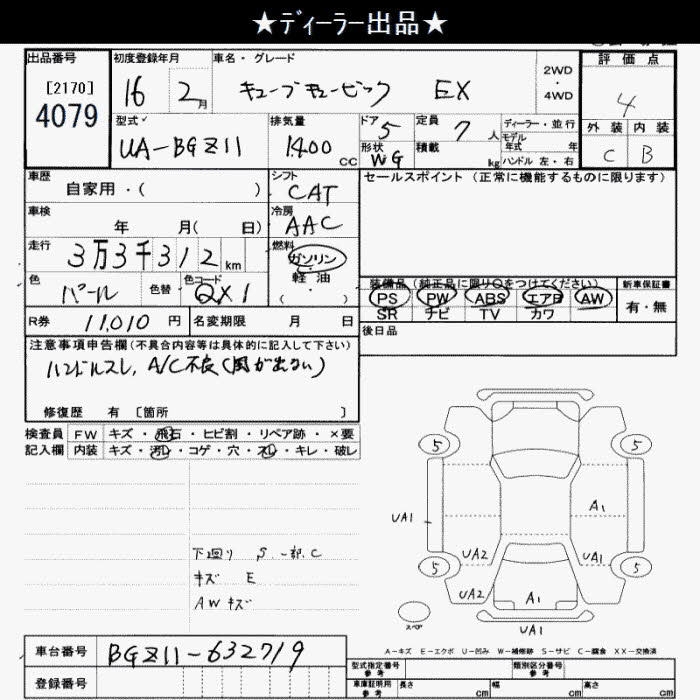 ★ディーラー出品★
出品番号
[2170]
4079
初度登録年月
16 2月
車名・グレード
キューブキュービック EX
2WD
・
4WD
評価点
4
外装 内装
C B
型式
UA-BGZ11
排気量
1400 CC
ドア
5
形状
WG
定員
7人
積載
kg
ディーラー・並行
モデル
年式 年
ハンドル 左・右
車歴
自家用・( )
シフト
CAT
セールスポイント(正常に機能するものに限ります)
車検
年 月( 日)
冷房
AAC
走行
3万3千312km
燃料
ガソリン
・
軽油
( )
色
パール
色替
色コード
QX1
装備品(純正品に限り○をつけてください)
PS PW ABS エアB AW
SR ナビ TV カワ
新車保証書
有・無
R券 11,010円
名変期限 月 日
後日品
注意事項申告欄(不具合内容等は具体的に記入して下さい)
ハンドルスレ, A/C不良(風が出ない)
修復歴 有 [箇所 ]
検査員
記入欄
FW キズ・飛石・ヒビ割・リペア跡・×要
内装 キズ・汚レ・コゲ・穴・スレ・キレ・破レ
下廻り S 一部.C
キズ E
AWキズ
5
5
A1
UA1
UA2
UA1
5
5
UA2
A1
スペア
UA1
A-キズ E-エクボ U-凹み W-補修跡 S-サビ C-腐食 XX-交換済
車台番号
BGZ11-632719
登録番号
型式指定番号
参考
類別区分番号
参考
車庫証明用
参考
長さ cm
幅 cm
高さ cm